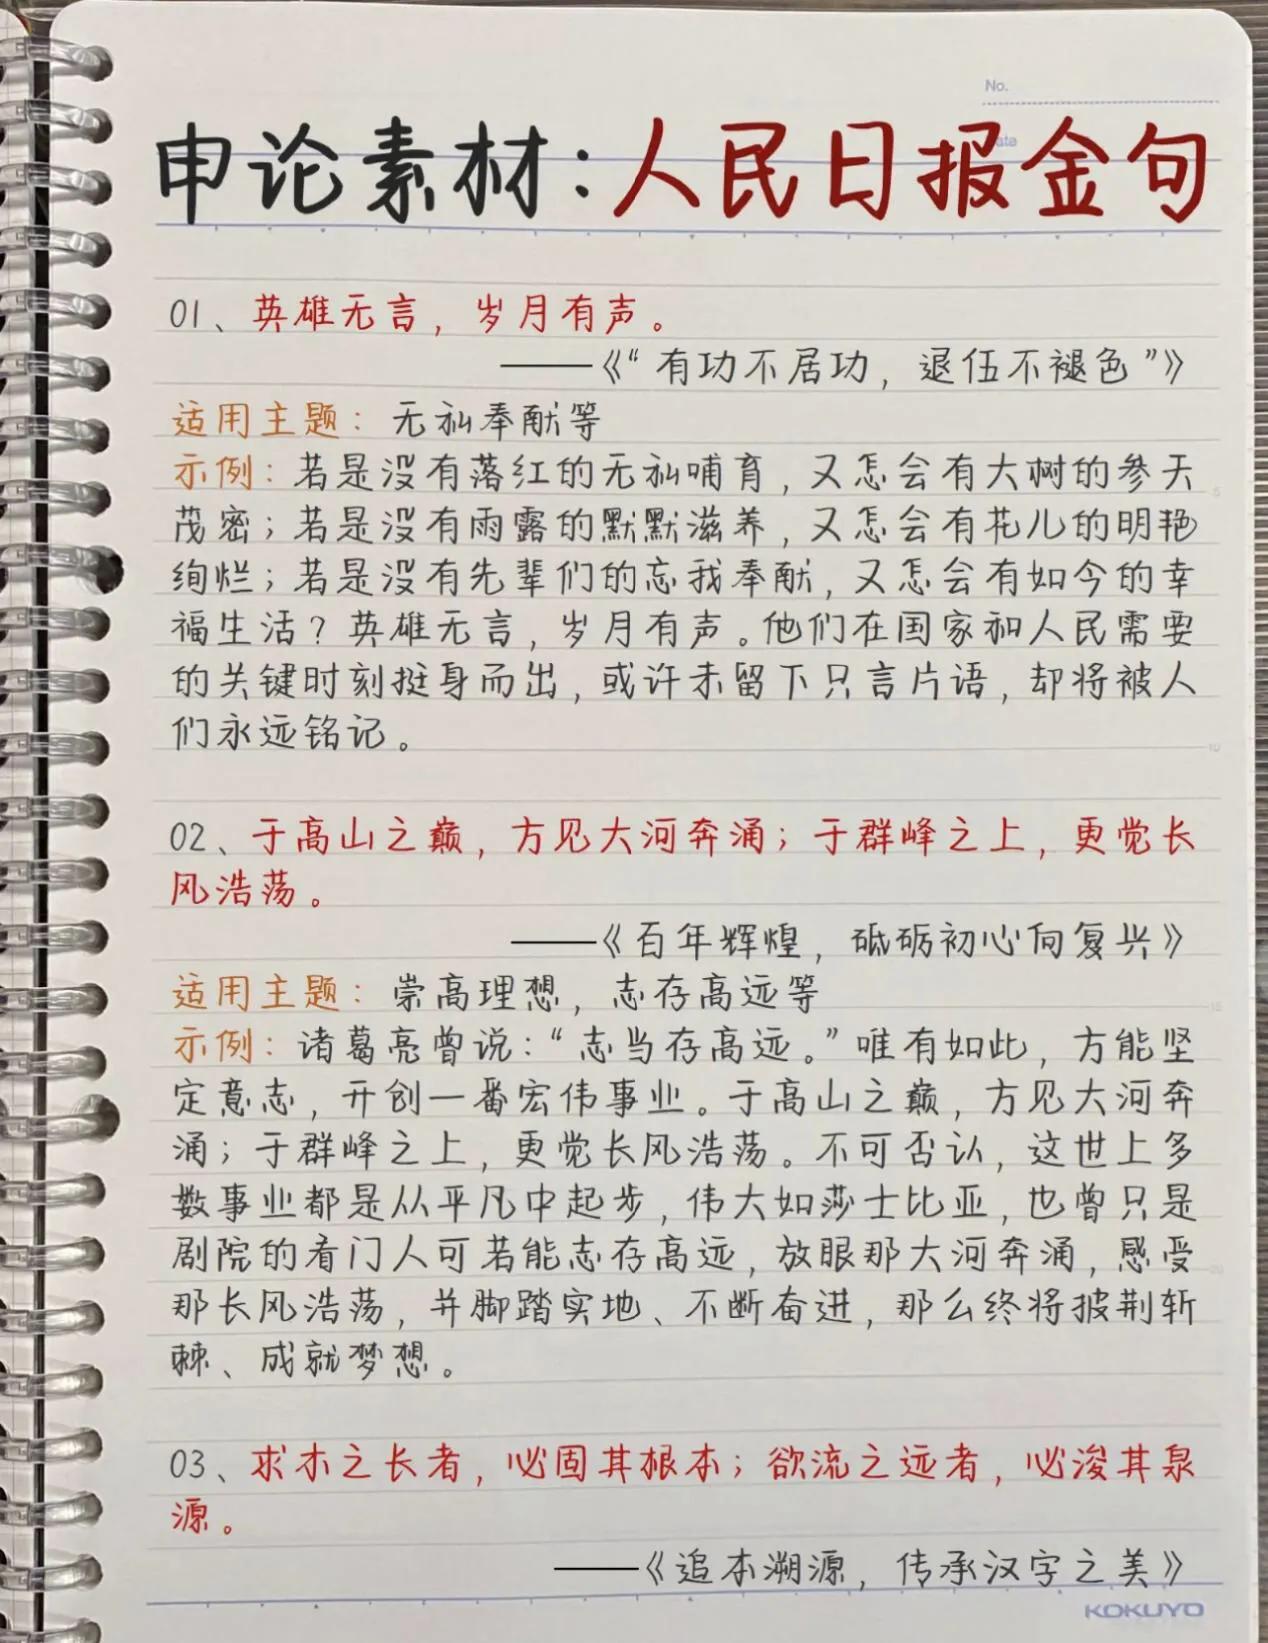 No.
申论素材：人民日报金句
01、英雄无言，岁月有声。
——《“有功不居功，退伍不褪色”》
适用主题：无私奉献等
示例：若是没有落红的无私哺育，又怎会有大树的参天
茂密；若是没有雨露的默默滋养，又怎会有花儿的明艳
绚烂；若是没有先辈们的忘我奉献，又怎会有如今的幸
福生活？英雄无言，岁月有声。他们在国家和人民需要
的关键时刻挺身而出，或许未留下只言片语，却将被人
们永远铭记。
02、于高山之巅，方见大河奔涌；于群峰之上，更觉长
风浩荡。
——《百年辉煌，砥砺初心向复兴》
适用主题：崇高理想，志存高远等
示例：诸葛亮曾说：“志当存高远。”唯有如此，方能坚
定意志，开创一番宏伟事业。于高山之巅，方见大河奔
涌；于群峰之上，更觉长风浩荡。不可否认，这世上多
数事业都是从平凡中起步，伟大如莎士比亚，也曾只是
剧院的看门人可若能志存高远，放眼那大河奔涌，感受
那长风浩荡，并脚踏实地、不断奋进，那么终将披荆斩
棘、成就梦想。
03、求木之长者，必固其根本；欲流之远者，必浚其泉
源。
——《追本溯源，传承汉字之美》
KOKUYO